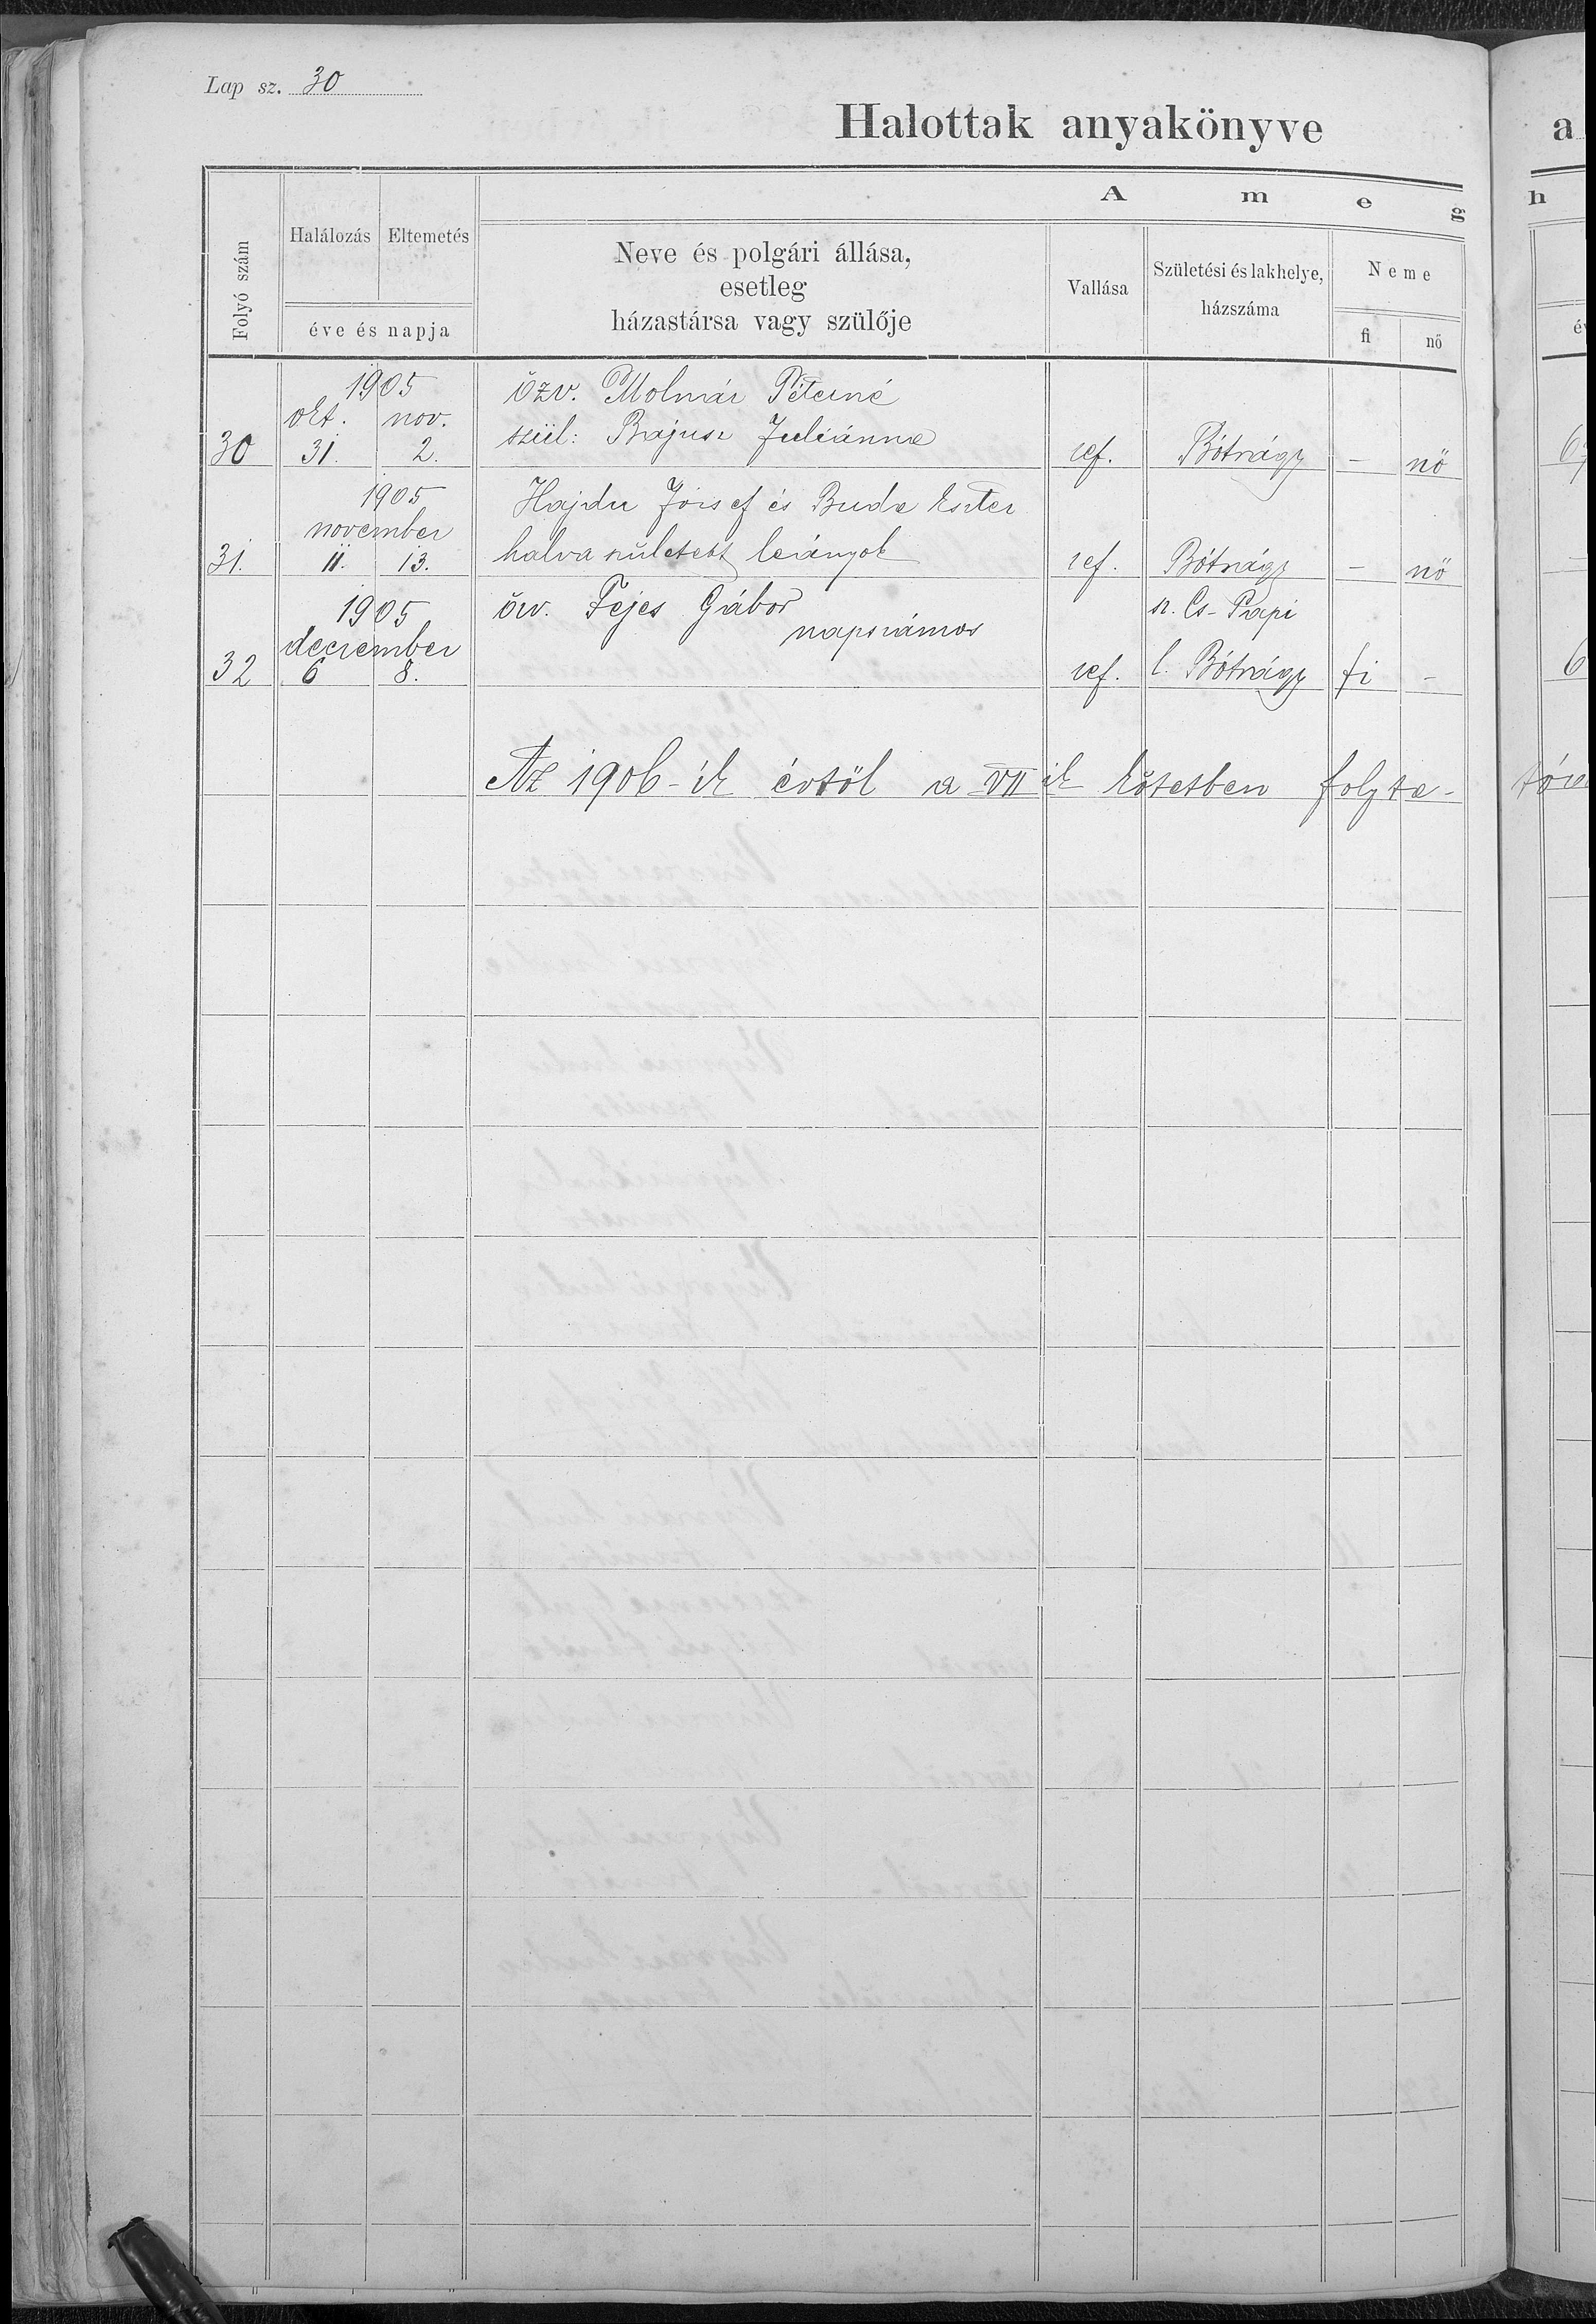 Lap sz. 30
Halottak anyakönyve
a
A m e g
h
Folyó szám
Halálozás
Eltemetés
éve és napja
Neve és polgári állása,
esetleg
házastársa vagy szülője
Vallása
Születési és lakhelye,
házszáma
Neme
fi
nő
1905
özv. Molnár Péterné
okt. nov.
30 31. 2. szül: Bajusz Juliánna ref. Bótrágy - nő
1905
Hajdu József és Buda Eszter
november
31. 11. 13. halva született leányok ref. Bótrágy - nő
1905 özv. Fejes Gábor sz. Cs-Papi
napszámos
december
32 6 8. ref. l. Bótrágy fi -
Az 1906-ik évtöl a VII ik kötetben folyta-